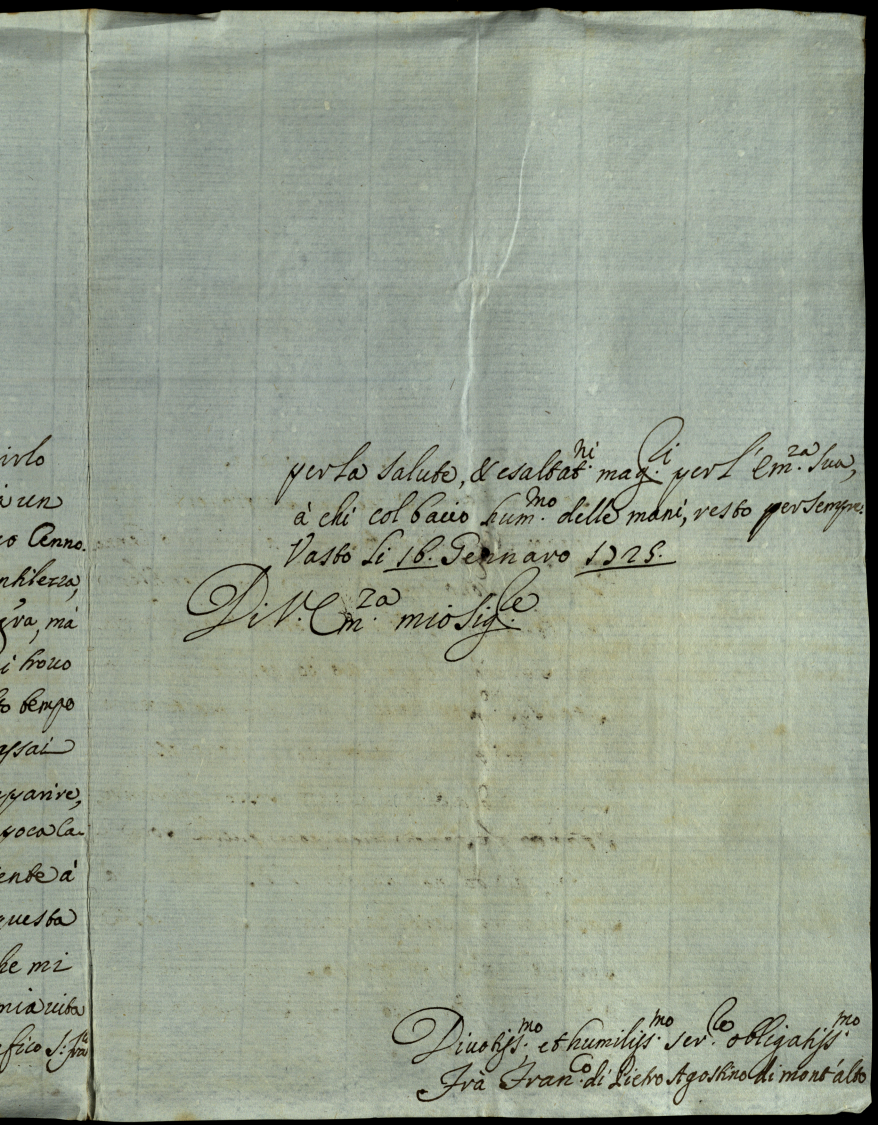 irlo
à un
co Cenno.
ntilezza,
gra, mà
i trouo
to tempo
assai
parire,
poca la-
ente à
questa
he mi
mia uita
efico S: frà
per la salute, & esaltat.ni mag.li per l'Em.za Sua,
à chi col bacio hum.mo delle mani, resto per sempre.
Vasto li 16. Gennaro 1725.
Di V. Em.za mio Sig.le
Diuotiss.mo et humiliss.mo ser.le obligatiss.mo
Frà Fran.co di Pietro Agostino di mont'alto